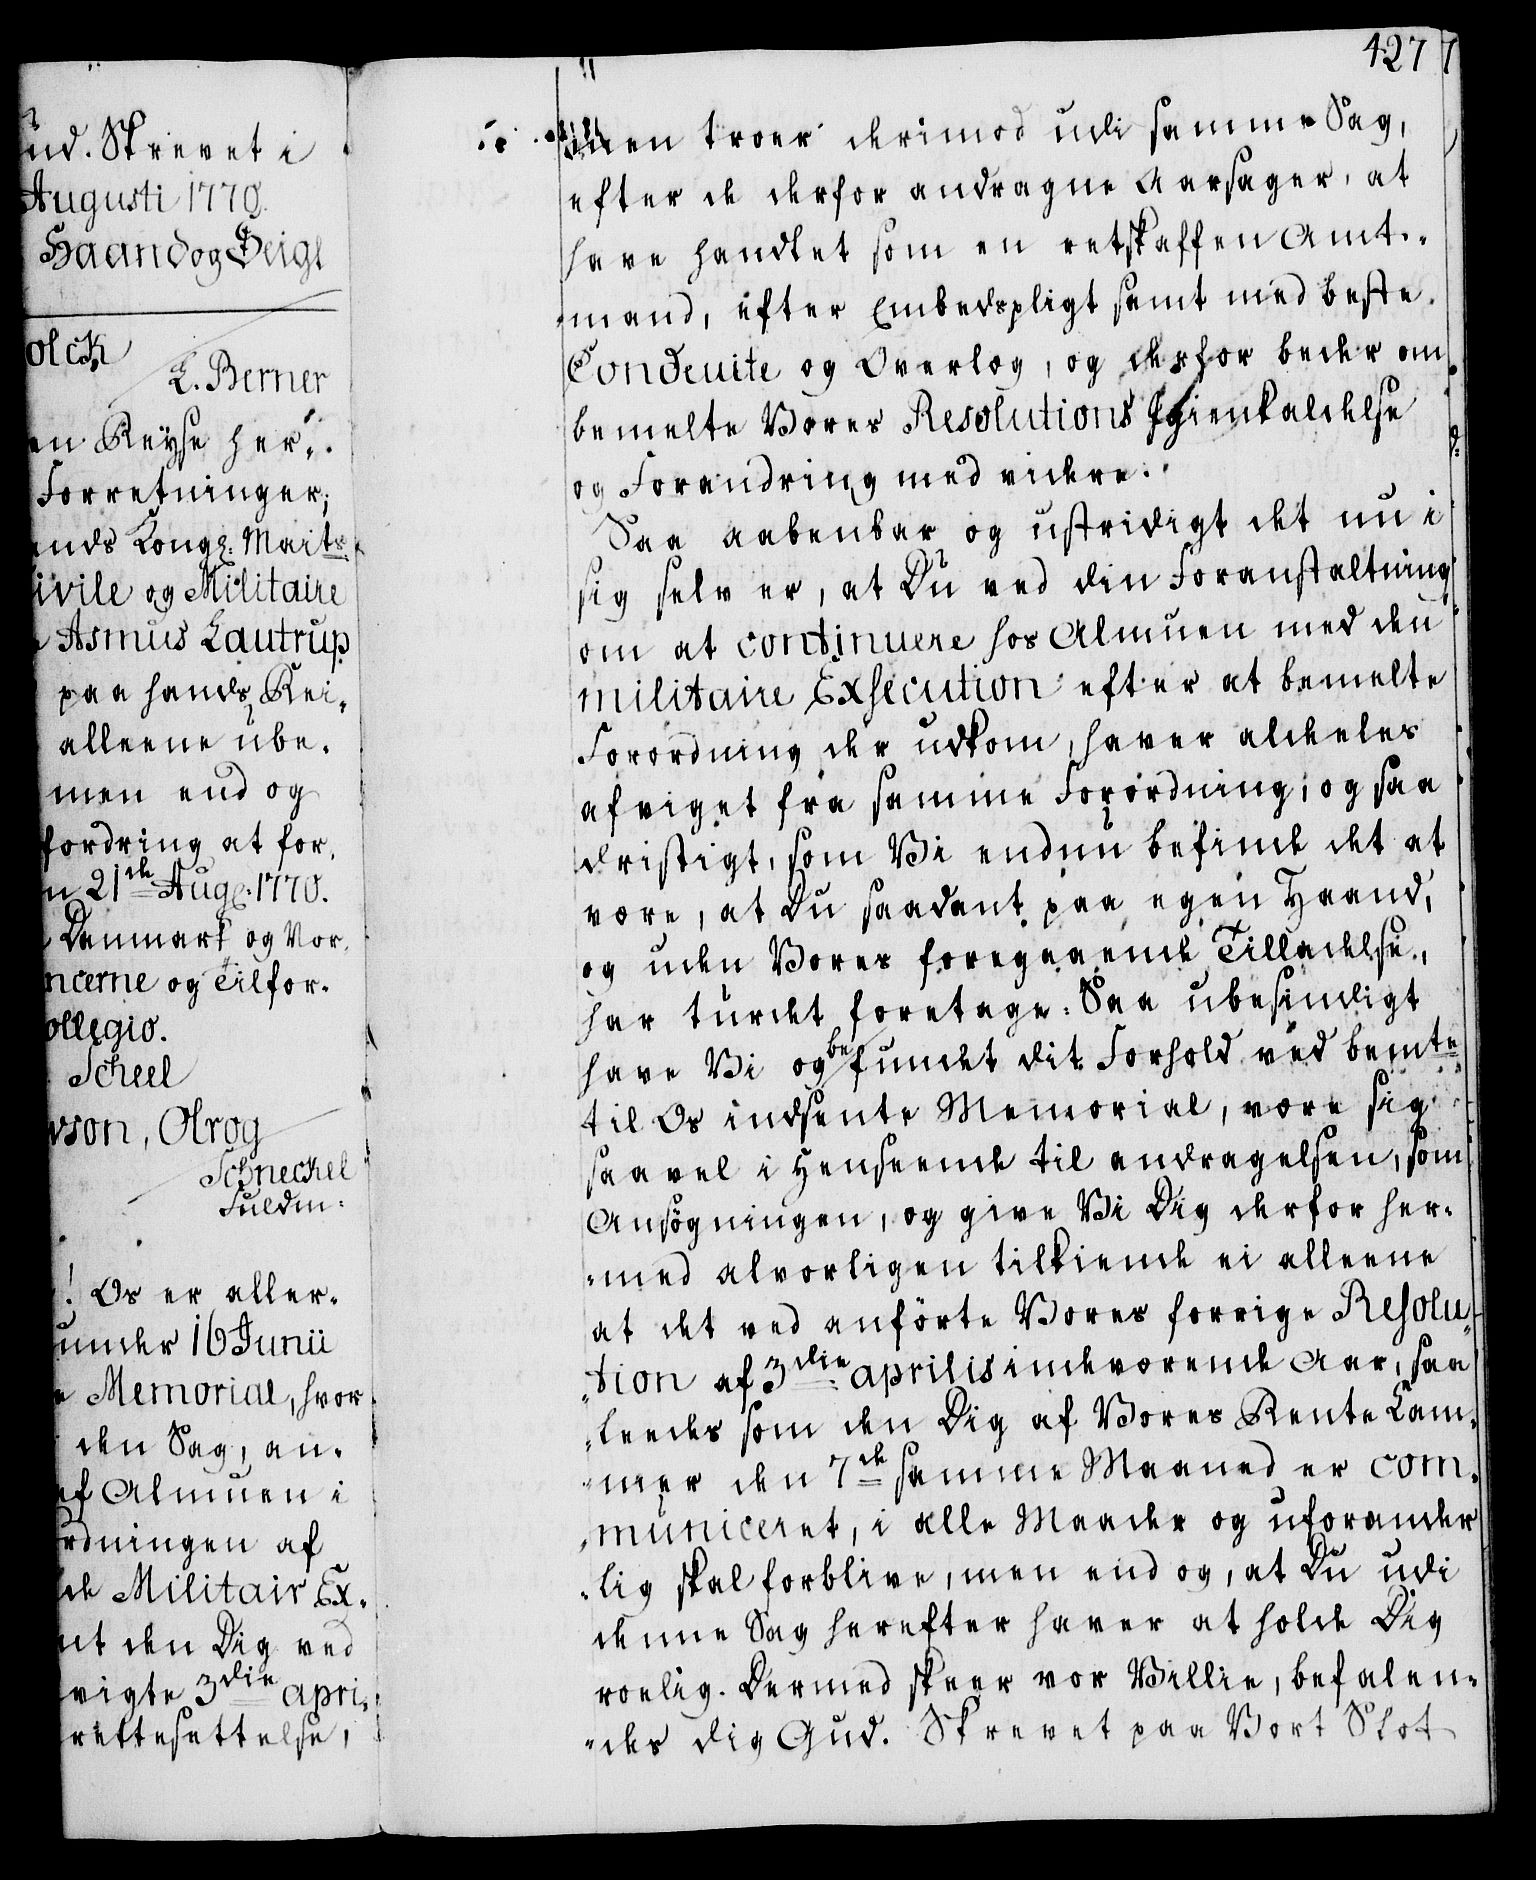 ud. Skrevet i
Augusti 1770.
Haand og Seigl
olck
L. Berner
en Reyse her„
Forretninger;
ands Kongl: Maits
ivile og Militaire
Asmus Lautrup
paa hands Rei„
alleene ube„
men end og
fordring at for„
n 21de Aug: 1770.
Danmark og Vor„
ncerne og Tilfor„
ollegio.
Scheel
wson, Olrog
Schneckel
Fuldm:
! Os er aller„
under 16 Junii
e Memorial, hvor
den Sag, an„
af Almuen i
rdningen af
de Militair Ex„
nt den Dig ved
vigte 3die apri„
rettesettelse,
427
men troer derimod udi samme Sag,
efter de derfor andragne Aarsager, at
have handlet som en retskaffen Amt„
„mand, efter Embedspligt samt med beste
Conduite og Overlæg, og derfor beder om
bemelte Vores Resolutions Igienkaldelse
og Forandring med videre.
Saa aabenbar og ustridigt det nu i
sig selv er, at Du ved din Foranstaltning
om at continuere hos Almuen med den
militaire Exsecution efter at bemelte
Forordning der udkom, haver aldeles
afviget fra samme Forordning; og saa
dristigt, som Vi endnu befinde det at
være, at Du saadant paa egen Haand,
og uden Vores foregaaende Tilladelse,
har turdet foretage: Saa ubesindigt
have Vi og befundet dit Forhold ved bemte
til Os indsente Memorial, være sig
saavel i Henseende til andragelsen, som
Ansøgningen, og give Vi Dig derfor her„
„med alvorligen tilkiende ei alleene
at det ved anførte Vores forrige Resolu„
„tion af 3die aprilis indeværende Aar, saa
„leedes som den Dig af Vores Rente Kam„
„mer den 7de samme Maaned er com„
„municeret, i alle Maader og uforander
„lig skal forblive, men end og, at Du udi
denne Sag herefter haver at holde Dig
roelig. Dermed skeer vor Villie, befalen„
„des dig Gud. Skrevet paa Vort Slot